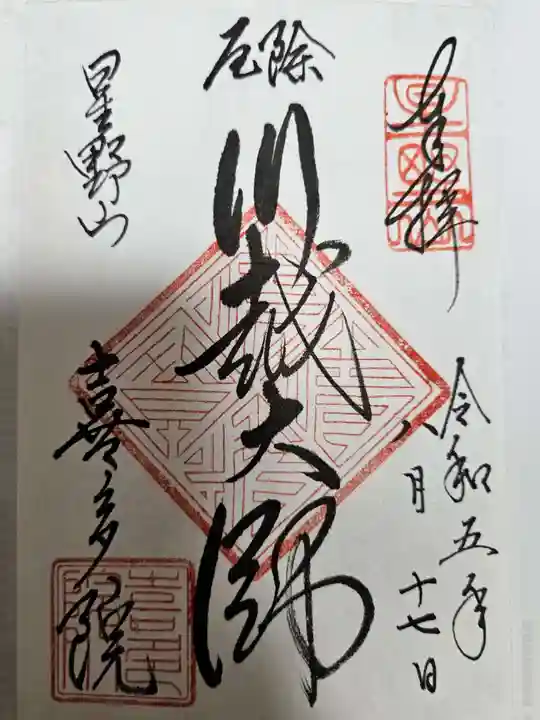 奉拝
令和五年
八月十七日
厄除
川越大師
星野山
喜多院